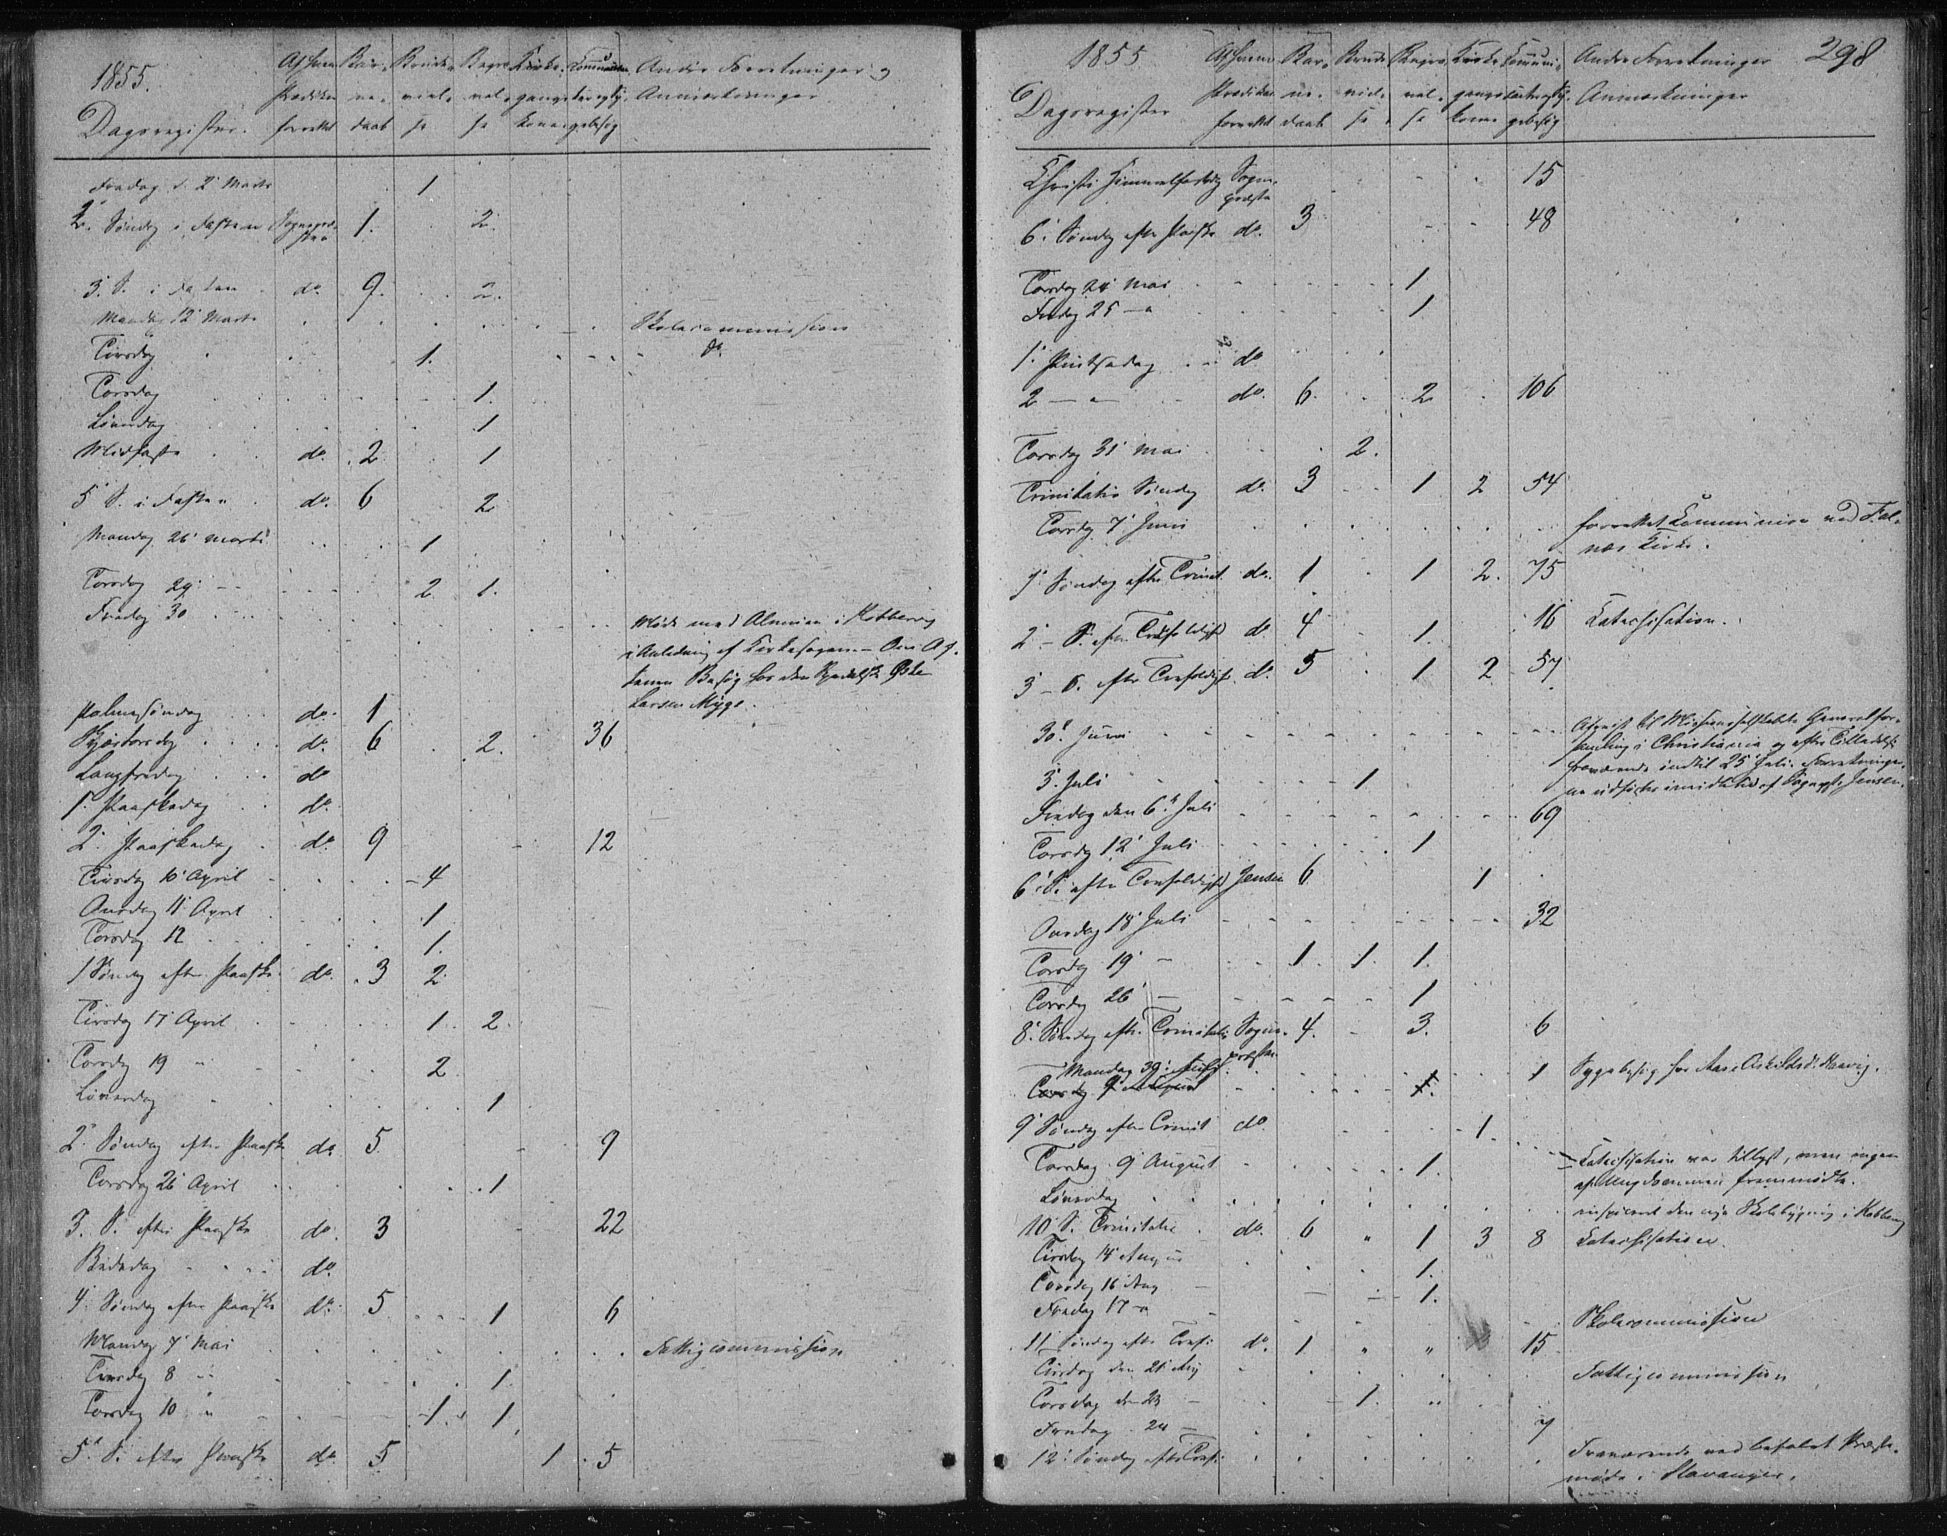 1855.
Dagsregister.
Af hvem Prædiken forrettet
Barnedaab
Brudevielse
Begravelse
Kirkegangskoner
Communion
Andre Forretninger og Anmærkninger
Fredag d. 2' Marts 1
2. Søndag i Fasten Sognepræsten 1. 2.
3. S. i Fasten do. 9. 2.
Mandag 12 Marts Skolecommission
Tirsdag 1. do.
Torsdag 1.
Løverdag 1
Midfaste do. 2 1
5' S. i Fasten do. 6 2
Mandag 26' Marts 1
Torsdag 29. 2 1.
Fredag 30 Møde med Almuen i Kobbervig
i Anledning af Kirkesagen.
Besøg hos den Spedalske
Larsen Myge.
Palmesøndag do. 1
Skjærtorsdag do. 6 2. 36
Langfredag do
1. Paaskedag do.
2. Paaskedag do. 9 12
Tirsdag 10' April 4
Onsdag 11' April 1
Torsdag 12 1.
1 Søndag efter Paaske do. 3 2
Tirsdag 17' April 1. 2.
Torsdag 19 2
Løverdag 1
2' Søndag efter Paaske do. 5 9
Torsdag 26' April 1
3' S. efter Paaske do. 3 22
Bededag do.
4' Søndag efter Paaske do. 5 1 6
Mandag 7' Mai Fattigcommission
Tirsdag 8 1.
Torsdag 10 1. 1
5' S. efter Paaske do. 5 1 5
1855
298
Dagsregister
Af hvem Prædiken forrettet
Barnedaab
Brudevielse
Begravelse
Kirkegangskone
Andre Forretninger
Anmærkninger
Christi Himmelfartsdag Sognepræsten 15
6' Søndag efter Paaske do. 3 48
Torsdag 24' Mai 1
Fredag 25 1
1' Pintsedag do
2 do. 6 2 106
Torsdag 31' Mai 2.
Trinitatis Søndag do. 3 1 2 54
Torsdag 7' Juni forrettet Communion ved Falnes
Kirke.
1' Søndag efter Trinit. do. 1 1 2. 75
2' S. efter Trefoldigh. do 4 1. 16 Catechisation.
3 S. efter Trefoldigh. do. 5 1 2 57
30' Juni Afreist til Missionsselskabets Generalforsamling
i Christiania og efter Tilladelse
fraværende indtil 25 Juli. Forretningerne
udførtes imidlertid af Sognepr. Jensen.
3' Juli 1
Fredag den 6' Juli 69
Torsdg 12' Juli 1
6' S. efter Trefoldigh. Jensen 6 1
Onsdag 18' Juli 32
Torsdg 19' 1 1. 1.
Torsdg 26' 1
8' Søndag efter Trinitatis Sognepræsten 4. 3. 6
Mandag 30' Juli 1 Sygebesøg hos
Torsdg 9' August 1.
9' Søndag efter Trinit do. 1.
Torsdag 9' August 1. Catechisation var tillyst, men ingen
af Ungdommen fremmødte.
Løverdag inspiceret den nye Skolebygning i Kobbervig
10' S. Trinitatis do. 6 " 1 3 8 Catechisation.
Tirsdag 14' August 1.
Torsdag 16' Aug 1.
Fredag 17 Skolecommission
11 Søndag efter Trefo. do. 1 " " 15
Tirsdag den 21' Aug Fattigcommission
Torsdag den 23 1.
Fredag 24 7
12' Søndag efter Trefo. Fraværende ved befalet Præstemøde
i Stavanger.